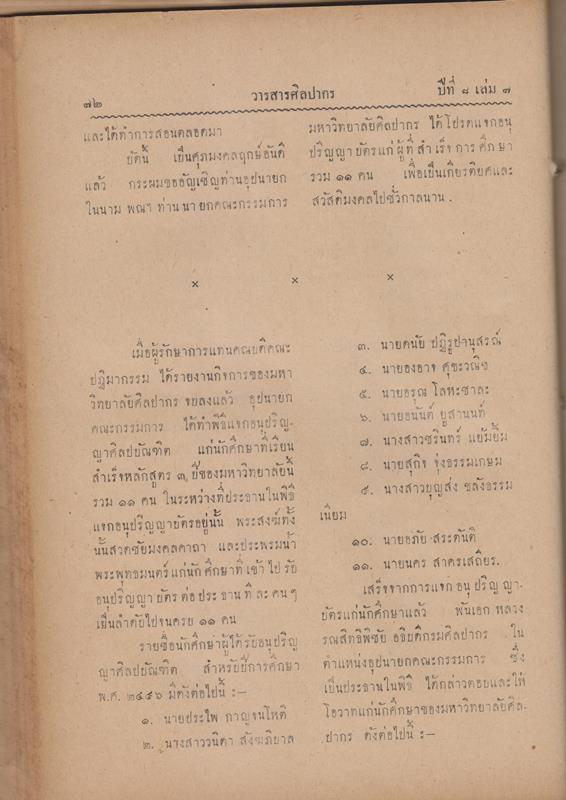 ๗๒
วารสารศิลปากร
ปีที่ ๘ เล่ม ๗
และได้ทำการสอนตลอดมา
บัดนี้ เป็นศุภมงคลฤกษ์อันดี
แล้ว กระผมขออัญเชิญท่านอุปนายก
ในนาม พณฯ ท่านนายกคณะกรรมการ
มหาวิทยาลัยศิลปากร ได้โปรดแจกอนุ
ปริญญาบัตรแก่ผู้ที่สำเร็จการศึกษา
รวม ๑๑ คน เพื่อเป็นเกียรติยศและ
สวัสดิมงคลไปชั่วกาลนาน.
× × ×
เมื่อผู้รักษาการแทนคณบดีคณะ
ปฏิมากรรม ได้รายงานกิจการของมหา
วิทยาลัยศิลปากร จบลงแล้ว อุปนายก
คณะกรรมการ ได้ทำพิธีแจกอนุปริญ-
ญาศิลปบัณฑิต แก่นักศึกษาที่เรียน
สำเร็จหลักสูตร ๓ ปีของมหาวิทยาลัยนี้
รวม ๑๑ คน ในระหว่างที่ประธานในพิธี
แจกอนุปริญญาบัตรอยู่นั้น พระสงฆ์ทั้ง
นั้นสวดชัยมงคลคาถา และประพรมน้ำ
พระพุทธมนตร์แก่นักศึกษาที่เข้าไปรับ
อนุปริญญาบัตรต่อประธานทีละคนๆ
เป็นลำดับไปจนครบ ๑๑ คน
รายชื่อนักศึกษาผู้ได้รับอนุปริญ
ญาศิลปบัณฑิต สำหรับปีการศึกษา
พ.ศ. ๒๔๙๖ มีดังต่อไปนี้ :—
๑. นายประไพ กาญจนโหติ
๒. นางสาววนิดา สังฆภิบาล
๓. นายดนัย ปฏิรูปานุสรณ์
๔. นายองอาจ ศุขะวณิช
๕. นายอรุณ โลหะชาละ
๖. นายอนันต์ ยูสานนท์
๗. นางสาวชรินทร์ แย้มยิ้ม
๘. นายสุกิจ จุ่งธรรมเกษม
๙. นางสาวบุญส่ง ชลังธรรม
เนียม
๑๐. นายอภัย สระตันติ
๑๑. นายนคร สาครเสถียร.
เสร็จจากการแจกอนุปริญญา-
บัตรแก่นักศึกษาแล้ว พันเอก หลวง
รณสิทธิพิชัย อธิบดีกรมศิลปากร ใน
ตำแหน่งอุปนายกคณะกรรมการ ซึ่ง
เป็นประธานในพิธี ได้กล่าวตอบและให้
โอวาทแก่นักศึกษาของมหาวิทยาลัยศิล-
ปากร ดังต่อไปนี้ :—